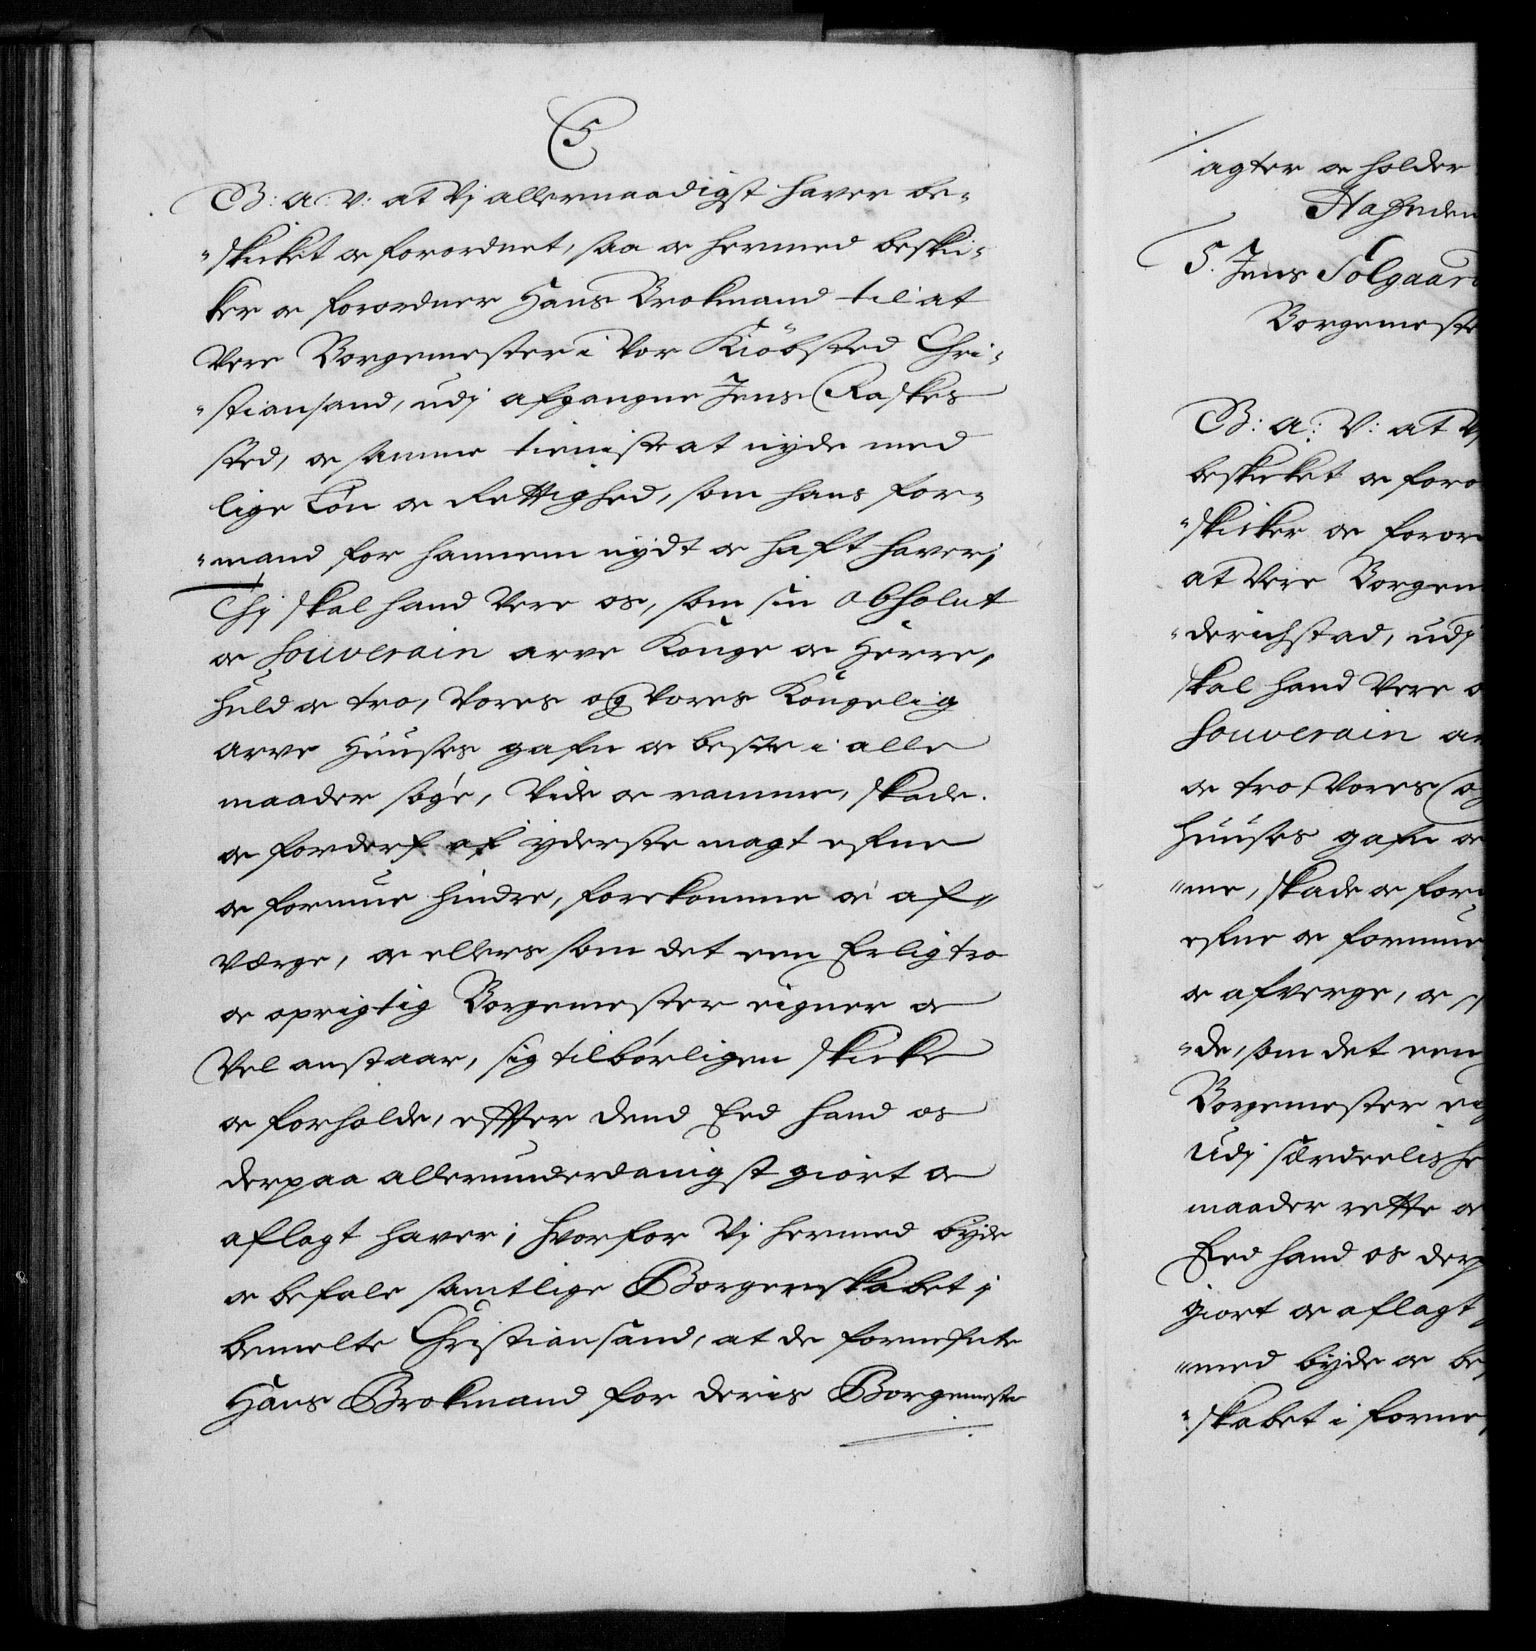 5
G: A: V: at Vj allernaadigst haver be-
-skicket oc forordnet, saa oc hermed beski-
ker oc forordner Hans Brokmand til at
Vere Borgemester i Vor Kiöbsted Chri-
-stiansand, udj afgangne Jens Raskes
sted, oc samme tieniste at nyde med
lige Løn oc Rettighed, som hans for-
-mand for hannem nydt oc haft haver;
Thj skal hand Vere os, som sin absolut
oc Souverain arve Konge oc Herre,
huld oc tro, Vores og Vores Kongelig
arve Huuses gafn oc beste i alle
maader søge, Vide oc ramme, skade
oc forderf af yderste magt efne
oc formue hindre, forekomme oc af-
værge, oc ellers som det een Erlig tro
oc oprigtig Borgemester eigner oc
Vel anstaar, sig tilbørligen skicke
oc forholde, effter dend Eed hand os
derpaa allerunderdanigst giort oc
aflagt haver; hvorfor Vj hermed byde
oc befale samtlige Borgerskabet j
bemelte Christiansand, at de formefnte
Hans Brokmand for deris Borgemester
agter oc holder
Hafnden
5. Jens Solgaard
Borgemeste
G: A: V: at Vj
beskicket oc foro
-skicker oc foror
at Vere Borgem
-derichstad, udj
skal hand Vere o
Souverain ar
oc tro, Vores og
Huuses gafn oc
-me, skade oc for
efne oc formue
oc afverge, oc
-de, som det een
Borgemester eig
Udj særdeelishe
maader rette oc
Eed hand os derp
giort oc aflagt
-med byde oc be
-skabet i forme